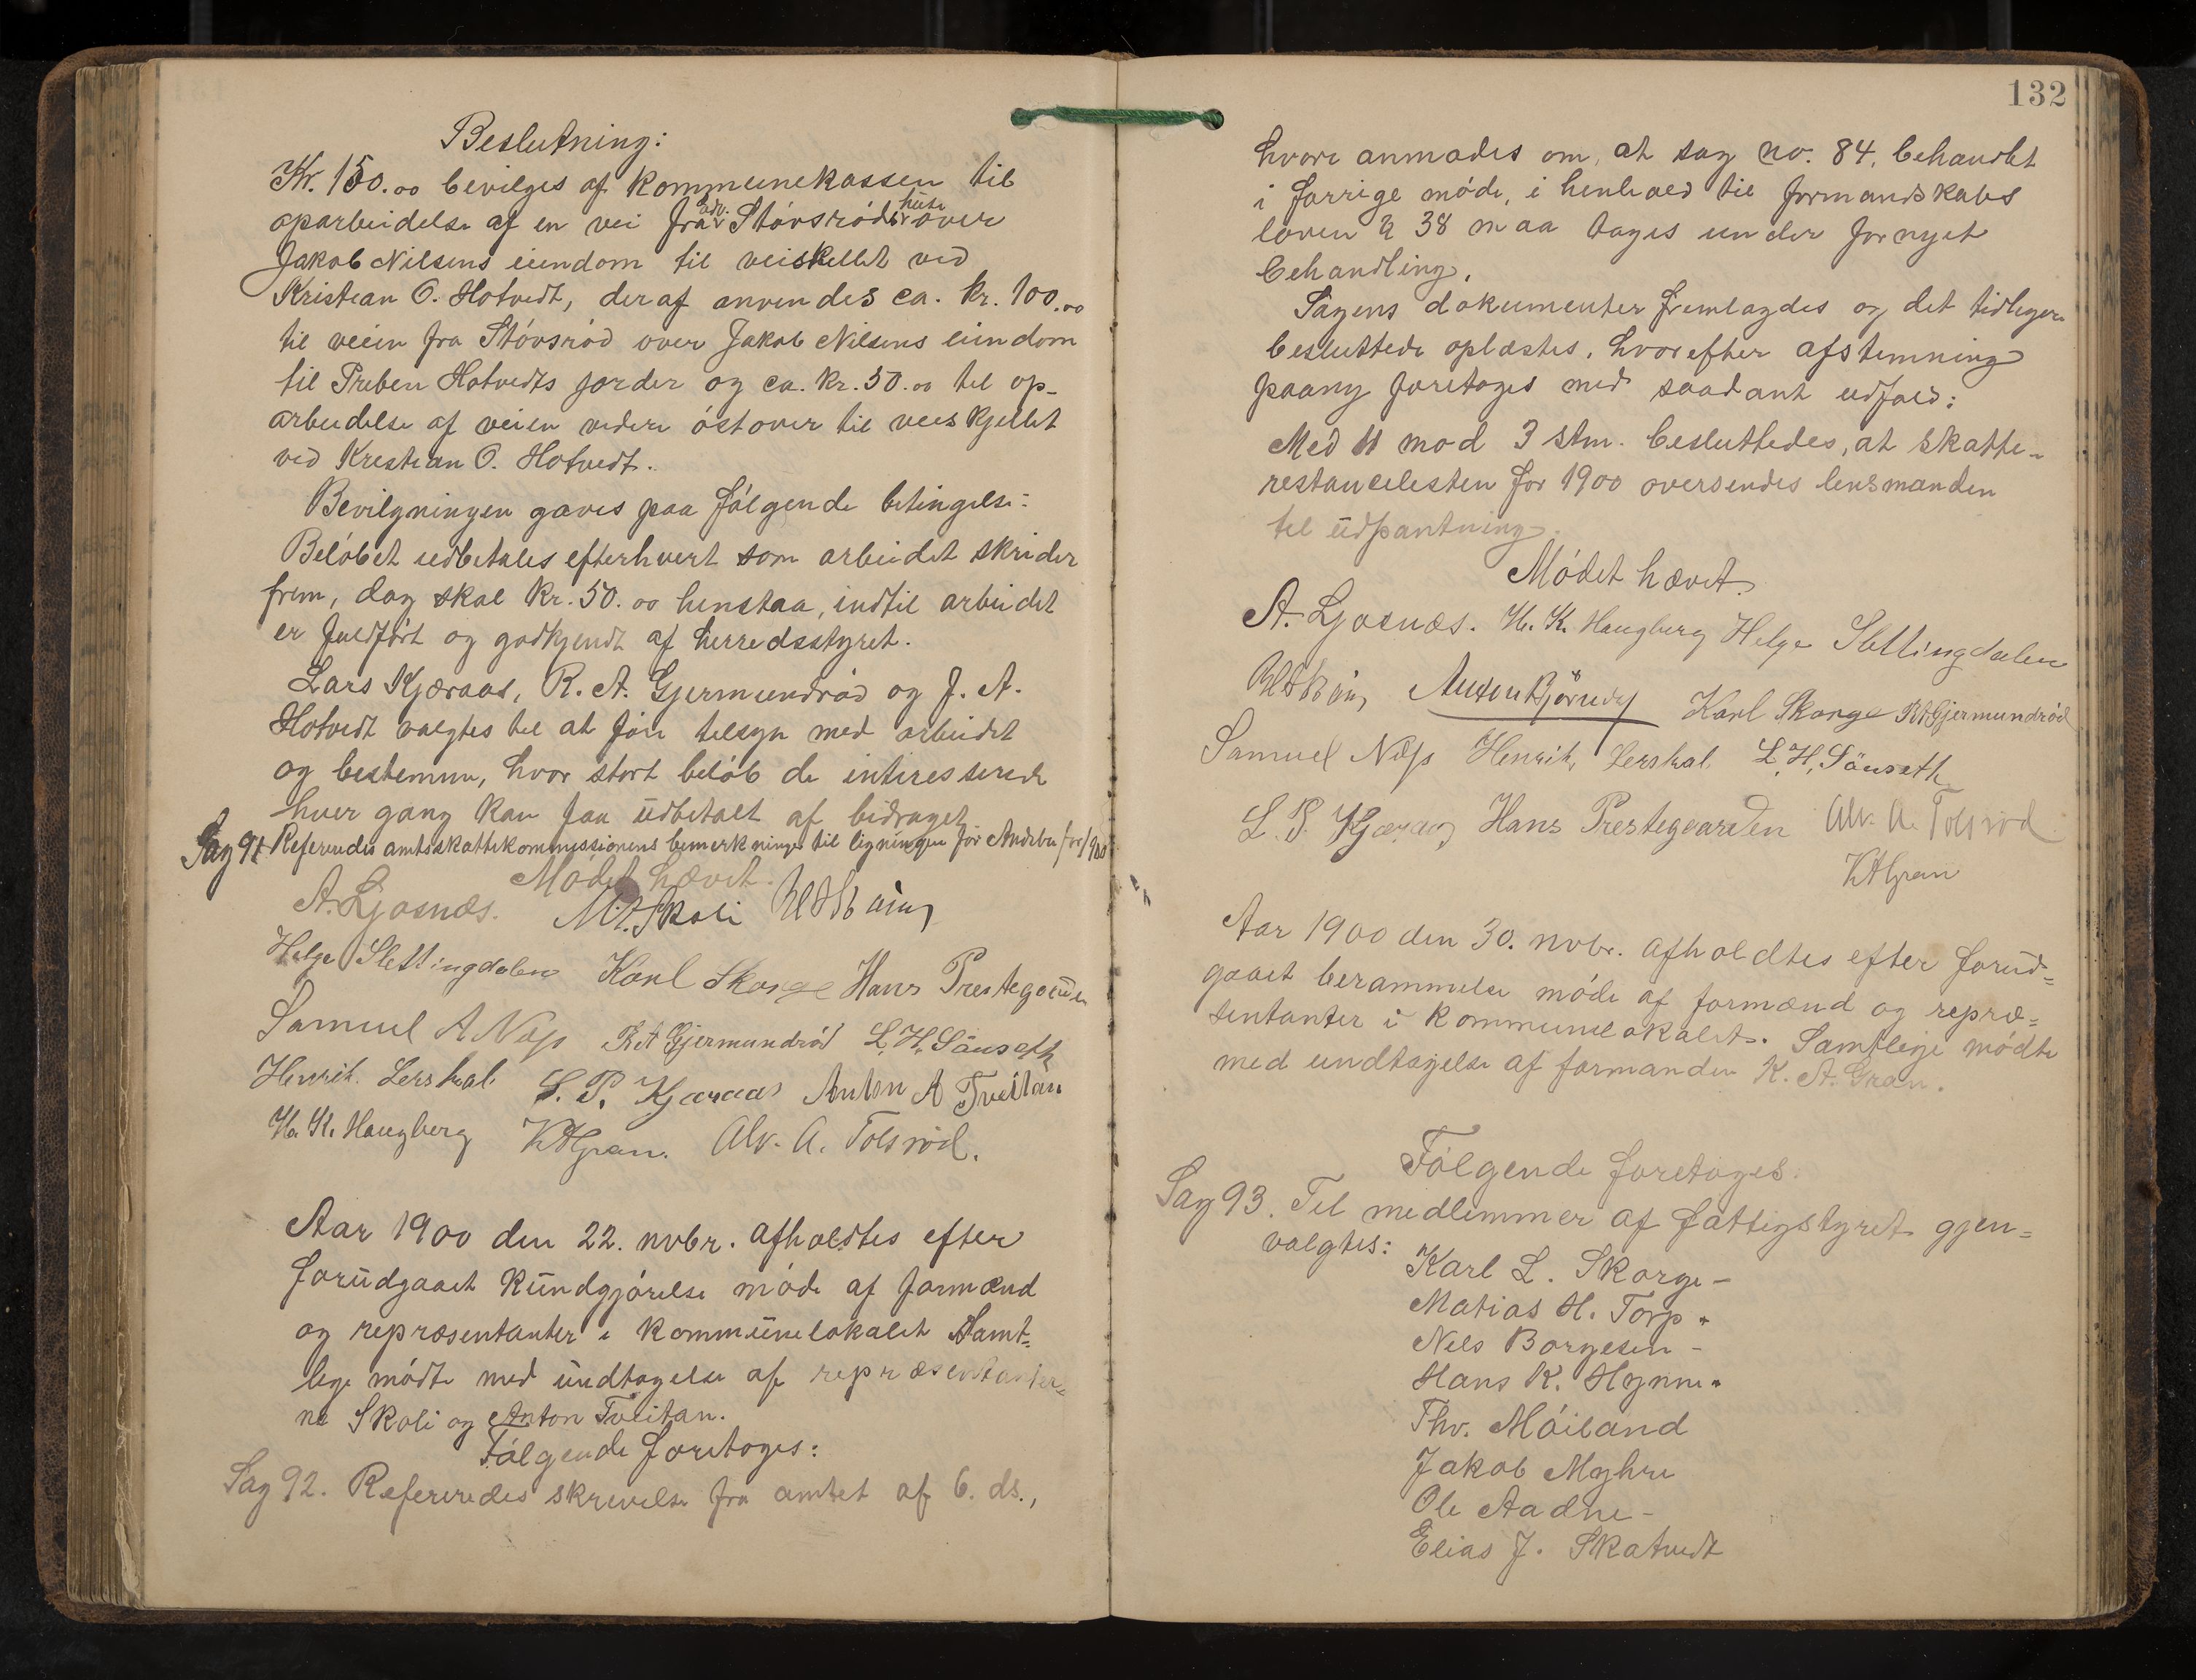 Beslutning:
Kr. 150.00 bevilges af kommunekassen til
oparbeidelse af en vei fra Stóvsród over
Jakob Nilsens eiendom til veiskellet ved
Kristian O. Hotvedt, deraf anvendes ca. kr. 100.00
til veien fra Stóvsród over Jakob Nilsens eiendom
til Preben Hotvedts jorder og ca. kr. 50.00 til op-
arbeidelse af veien videre óstover til veiskjellet
ved Kristian O. Hotvedt.
Bevilgningen gaves paa fólgende betingelse:
Belóbet udbetales efterhvert som arbeidet skrider
frem, dog skal kr. 50.00 henstaa, indtil arbeidet
er fuldfórt og godkjendt af herredsstyret.
Lars Kjæraas, R. A. Gjermundród og J. A.
Hotvedt valgtes til at fóre tilsyn med arbeidet
og bestemme, hvor stort belób de interesserede
hver gang kan faa udbetalt af bidraget.
Sag 91 Refereredes amtsskattekommissionens bemerkninger til ligningen for Andebu for 1900
Módet hævet.
A. Ljosnæs. M. A. Skoli
Helge Slettingdalen Karl Skorge Hans Prestegaarden
Samuel A Næss R A Gjermundród L. H. Sáuseth
Henrik Lerskal L. P. Kjæraas Anton A Tveitan
H. K. Haugberg K A Gran. Alv. A. Tolsród.
Aar 1900 den 22. novbr. afholdtes efter
forudgaaet kundgjórelse móde af formænd
og repræsentanter i kommunelokalet Samt-
lige módte med undtagelse af repræsentanter-
ne Skoli og Anton Tveitan.
Fólgende foretoges:
Sag 92. Refereredes skrivelse fra amtet af 6. ds.,
132
hvori anmodes om, at sag no. 84, behandlet
i forrige móde, i henhold til formandskabs
loven § 38 maa tages under fornyet
behandling.
Sagens dokumenter fremlagdes og det tidligere
besluttede oplæstes, hvorefter afstemning
paany foretoges med saadant udfald:
Med 11 mod 3 stm. besluttedes, at skatte-
restancelisten for 1900 oversendes lensmanden
til udpantning.
Módet hævet.
A. Ljosnæs. H. K. Haugberg Helge Slettingdalen
Karl Skorge R A Gjermundród
Samuel Næss Henrik Lerskal L. H. Sáuseth
L. P. Kjæraas Hans Prestegaarden Alv. A. Tolsród
K A Gran
Aar 1900 den 30. novbr. afholdtes efter forud-
gaaet berammelse móde af formænd og repræ-
sentanter i kommunelokalet. Samtlige módte
med undtagelse af formanden K. A. Gran.
Fólgende foretoges:
Sag 93. Til medlemmer af fattigstyret gjen-
valgtes:
Karl L. Skorge -
Matias H. Torp -
Nils Borgesen -
Hans K. Hynne -
Thv. Móiland
Jakob Myhre
Ole Aadne -
Elias J. Skatvedt